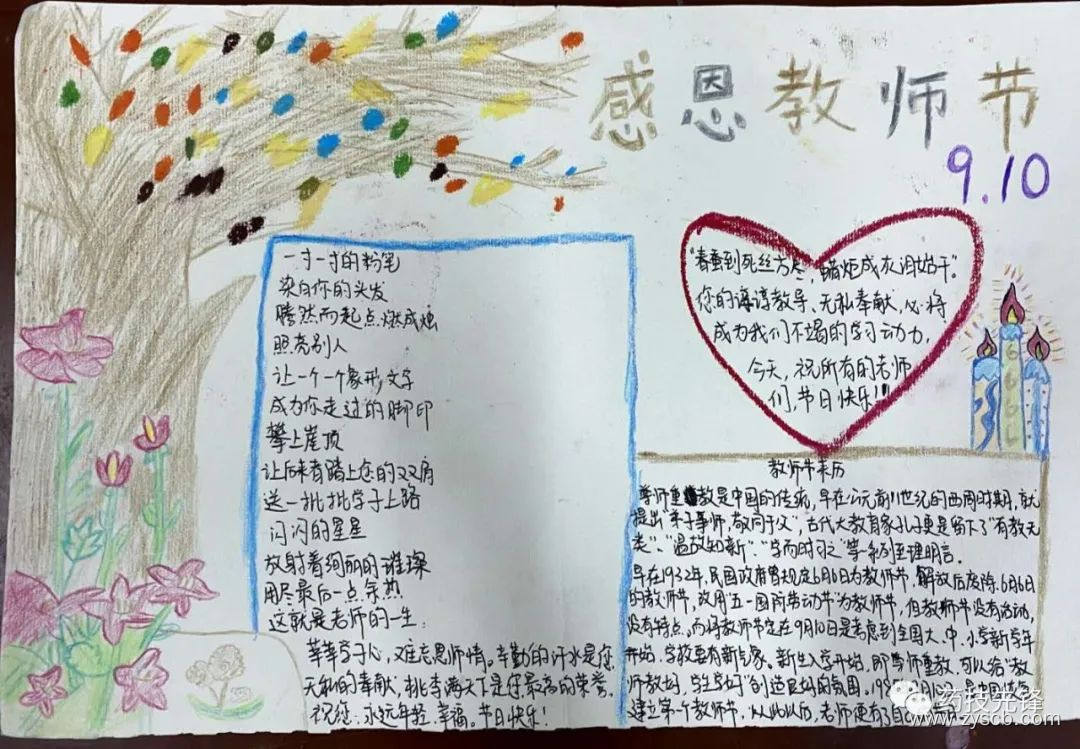 感恩教师节
9.10
一寸一寸的粉笔
染白你的头发
腾然而起点燃成烛
照亮别人
让一个一个象形文字
成为你走过的脚印
攀上崖顶
让后来者踏上您的双肩
送一批批学子上路
闪闪的星星
放射着绚丽的璀璨
用尽最后一点余热
这就是老师的一生:
莘莘学子心,难忘恩师情。辛勤的汗水是您
无私的奉献,桃李满天下是您最高的荣誉。
祝您:永远年轻,幸福。节日快乐!
"春蚕到死丝方尽,蜡炬成灰泪始干"。
您的谆谆教导、无私奉献,必将
成为我们不竭的学习动力,
今天,祝所有的老师
们,节日快乐!
教师节来历
尊师重教是中国的传统,早在公元前11世纪的西周时期,就
提出"弟子事师,敬同于父",古代大教育家孔子更是留下了"有教无
类"、"温故知新"、"学而时习之"等一系列至理明言。
早在1932年,民国政府曾规定6月6日为教师节,解放后废除6月6日
的教师节,改用"五一国际劳动节"为教师节,但教师节没有活动,
没有特点。而将教师节定在9月10日是考虑到全国大、中、小学新学年
开始,学校要有新气象。新生入学开始,即尊师重教,可以给"教
师教好,学生学好"创造良好的氛围。
建立第个教师节,从此以后,老师便有了自己
药技先锋
www.zyscb.com